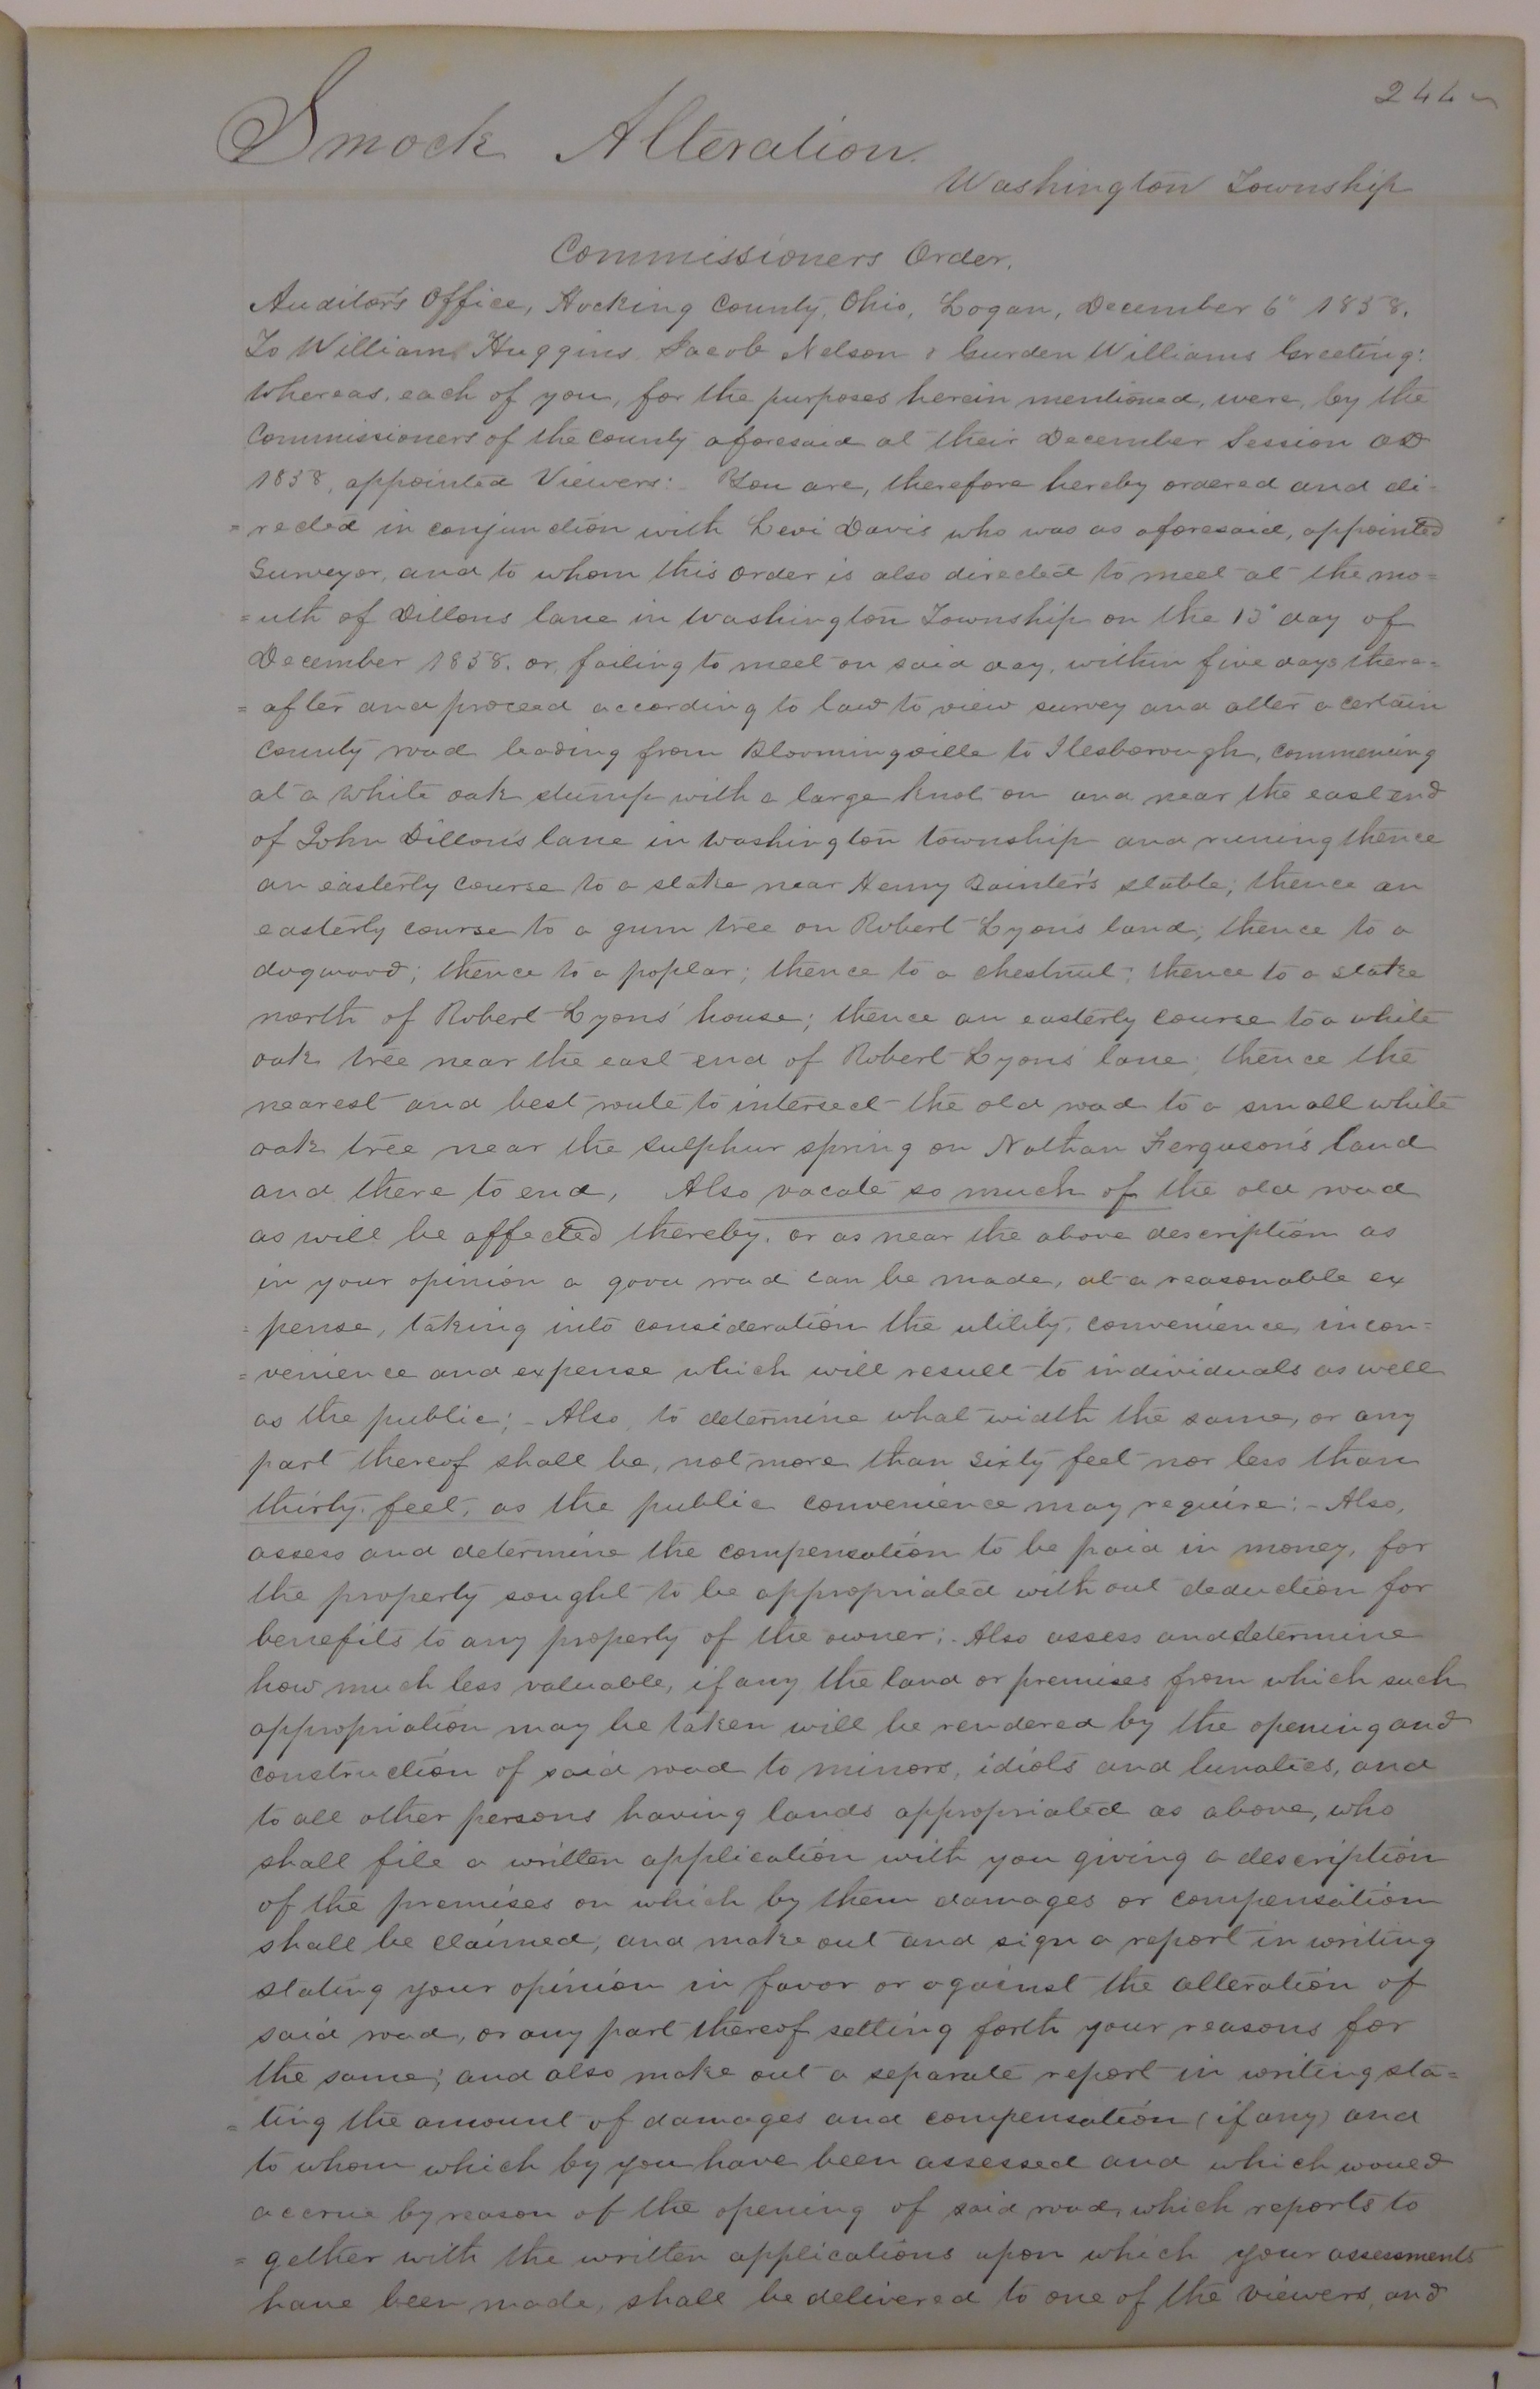 244
Smock Alteration.
Washington Township
Commissioners Order.
Auditor's Office, Hocking County, Ohio, Logan, December 6" 1858.
To William Huggins Jacob Nelson & Gurden Williams Greeting:
Whereas, each of you, for the purposes herein mentioned, were, by the
Commissioners of the County aforesaid at their December Session AD
1858, appointed Viewers:- You are, therefore hereby ordered and di-
=rected in conjunction with Levi Davis who was as aforesaid, appointed
Surveyor, and to whom this order is also directed to meet at the mo=
=uth of Dillons lane in Washington Township on the 13" day of
December 1858. or, failing to meet on said day, within five days there=
=after and proceed according to law to view survey and alter a certain
County road leading from Bloomingville to Ilesborough, commencing
at a white oak stump with a large knot on and near the east end
of John Dillon's lane in Washington township and runing thence
an easterly course to a stake near Henry Bainter's stable; thence an
easterly course to a gum tree on Robert Lyons land; thence to a
dogwood; thence to a poplar; thence to a chestnut; thence to a stake
north of Robert Lyons' house; thence an easterly course to a white
oak tree near the east end of Robert Lyons' lane; thence the
nearest and best route to intersect the old road to a small white
oak tree near the sulphur spring on Nathan Ferguson's land
and there to end, Also vacate so much of the old road
as will be affected thereby, or as near the above description as
in your opinion a good road can be made, at a reasonable ex
=pense, taking into consideration the utility, convenience, incon=
=venience and expense which will result to individuals as well
as the public;- Also, to determine what width the same, or any
part thereof shall be, not more than sixty feet nor less than
thirty feet, as the public convenience may require:- Also,
assess and determine the compensation to be paid in money, for
the property sought to be appropriated without deduction for
benefits to any property of the owner;- Also assess and determine
how much less valuable, if any the land or premises from which such
appropriation may be taken will be rendered by the opening and
construction of said road to minors, idiots and lunatics, and
to all other persons having lands appropriated as above, who
shall file a written application with you giving a description
of the premises on which by them damages or compensation
shall be claimed; and make out and sign a report in writing
stating your opinion in favor or against the alteration of
said road, or any part thereof setting forth your reasons for
the same; and also make out a separate report in writing sta=
=ting the amount of damages and compensation (if any) and
to whom which by you have been assessed and which would
accrue by reason of the opening of said road, which reports to
=gether with the written applications upon which your assessments
have been made, shall be delivered to one of the viewers, and